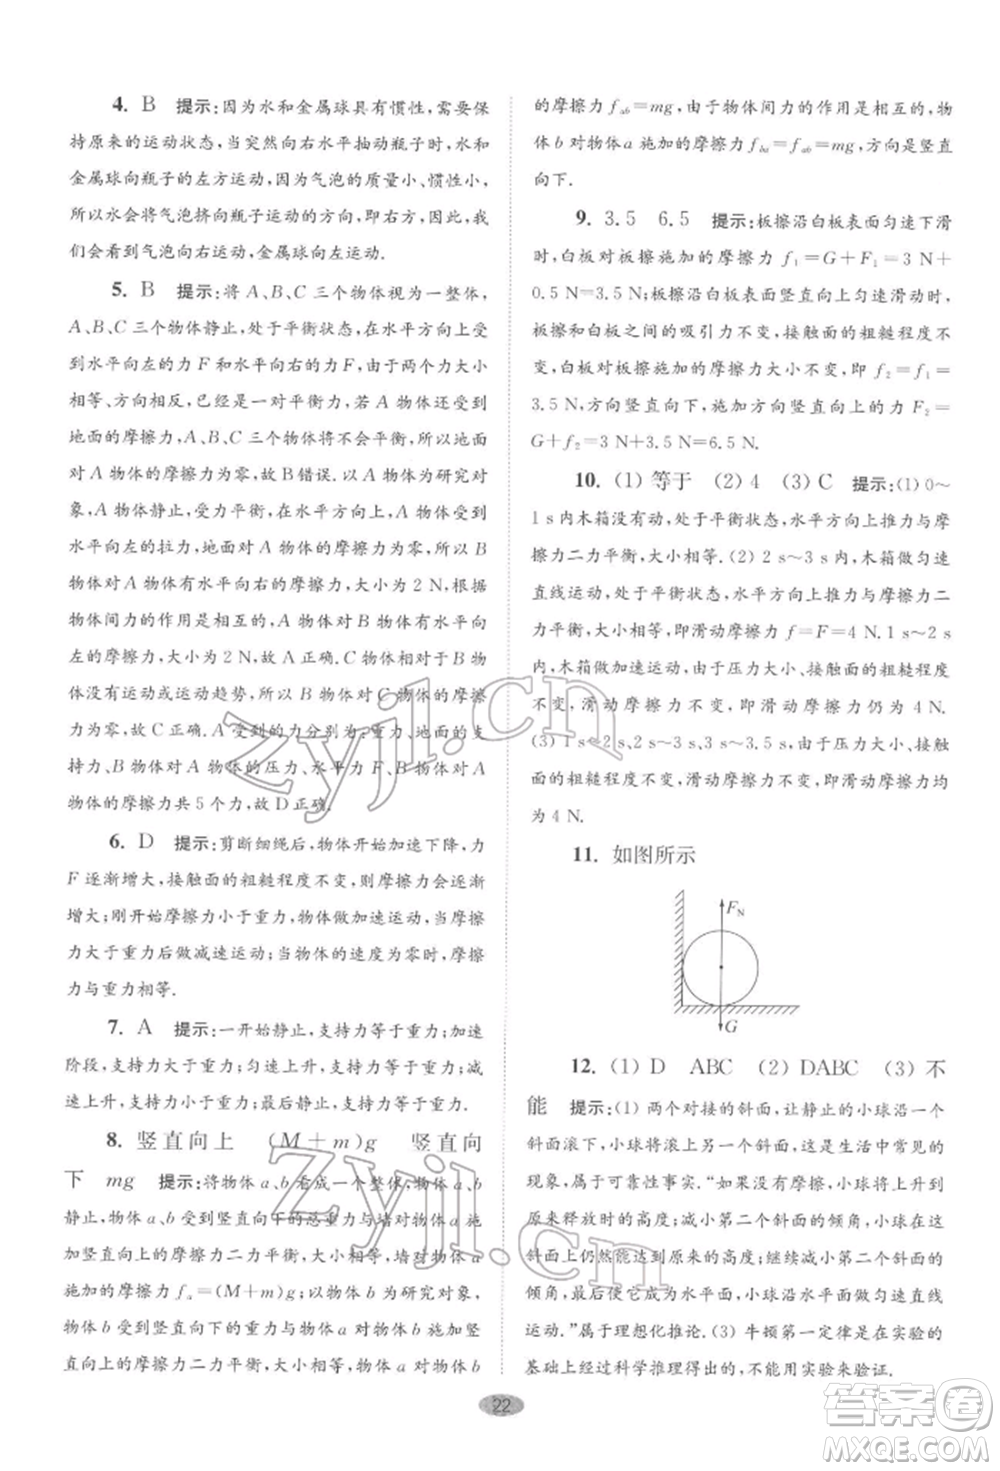 4. B 提示:因为水和金属球具有惯性,需要保
持原来的运动状态,当突然向右水平抽动瓶子时,水和
金属球向瓶子的左方运动,因为气泡的质量小、惯性小,
所以水会将气泡挤向瓶子运动的方向,即右方,因此,我
们会看到气泡向右运动,金属球向左运动.
5. B 提示:将 A、B、C 三个物体视为一整体,
A、B、C 三个物体静止,处于平衡状态,在水平方向上受
到水平向左的力 F 和水平向右的力 F,由于两个力大小
相等、方向相反,已经是一对平衡力,若 A 物体还受到
地面的摩擦力,A、B、C 三个物体将不会平衡,所以地面
对 A 物体的摩擦力为零,故 B 错误. 以 A 物体为研究对
象,A 物体静止,受力平衡,在水平方向上,A 物体受到
水平向左的拉力,地面对 A 物体的摩擦力为零,所以 B
物体对 A 物体有水平向右的摩擦力,大小为 2 N,根据
力的作用是相互的,所以 A 物体对 B 物体有水平向左
的摩擦力,大小为 2 N,故 A 正确. C 物体静止,相对于 B
物体没有运动或运动趋势,所以 B 物体对 C 物体的摩
擦力为零,故 C 正确. A 受到的力分别为:重力、地面的支
持力、B 物体对 A 物体的压力、水平力 F、B 物体对 A
物体的摩擦力共 5 个力,故 D 正确.
6. D 提示:剪断细绳后,物体加速下降,力
F 逐渐增大,接触面的粗糙程度不变,则摩擦力逐渐
增大;刚开始摩擦力小于重力,物体做加速运动,摩擦
力大于重力后做减速运动;当物体的速度为零时,摩擦
力与重力相等.
7. A 提示:一开始静止,支持力等于重力;加速
阶段,支持力大于重力;匀速上升,支持力等于重力;减
速上升,支持力小于重力;最后静止,支持力等于重力.
8. 竖直向上 (M+m)g 竖直向
下 mg 提示:将物体 a、b 看成一个整体,物体 a、b
静止,物体 a、b 受到竖直向下的总重力与墙对物体 a 施
加竖直向上的摩擦力二力平衡,大小相等,墙对物体 a
施加的摩擦力 fₐ=(M+m)g;以物体 b 为研究对象,物
体 b 受到竖直向下的重力与物体 a 对物体 b 施加竖
直向上的摩擦力二力平衡,大小相等,物体 a 对物体 b
的摩擦力 f_ab=mg,由于物体间力的作用是相互的,
物体 b 对物体 a 施加的摩擦力 f_ba=f_ab=mg,方向竖直
向下.
9. 3.5 6.5 提示:板擦沿白板表面匀速下滑
时,白板对板擦施加的摩擦力 f₁=G+F₁=3 N+
0.5 N=3.5 N;板擦沿白板表面竖直向上匀速滑动时,
板擦和白板之间的吸引力不变,接触面的粗糙程度不
变,白板对板擦施加的摩擦力大小不变,即 f₂=f₁=
3.5 N,方向竖直向下,施加方向竖直向上的力 F₂=
G+f₂=3 N+3.5 N=6.5 N.
10. (1) 等于 (2) 4 (3) C 提示:(1) 0~
1 s 内木箱没有动,处于平衡状态,水平方向上推力与摩
擦力二力平衡,大小相等. (2) 2 s~3 s 内,木箱做匀速
直线运动,处于平衡状态,水平方向上推力与摩擦力二
力平衡,大小相等,即滑动摩擦力 f=F=4 N. 1 s~2 s
内,木箱做加速运动,由于压力大小、接触面的粗糙程度
不变,滑动摩擦力大小不变,即滑动摩擦力仍为 4 N.
(3) 1 s~2 s 内和 3 s~3.5 s 内,由于压力大小、接触
面的粗糙程度不变,滑动摩擦力大小不变,即滑动摩擦力均
为 4 N.
11. 如图所示
F_N
G
12. (1) D ABC (2) DABC (3) 不
能 提示:(1) 两个对接的斜面,让静止的小球沿一个
斜面滚下,小球将滚上另一个斜面,这是生活中常见的
现象,属于可靠性事实. “如果没有摩擦,小球将上升到
原来释放时的高度;减小第二个斜面的倾角,小球在这
斜面上仍然能达到原来的高度;继续减小第二个斜面的
倾角,最后使它成为水平面,小球沿水平面做匀速直线
运动.”属于理想化推论. (3) 牛顿第一定律是在实验的
基础上经过科学推理得出的,不能用实验来验证.
22
zyjl.cn
zyjl.cn
答案圈
MXQE.COM